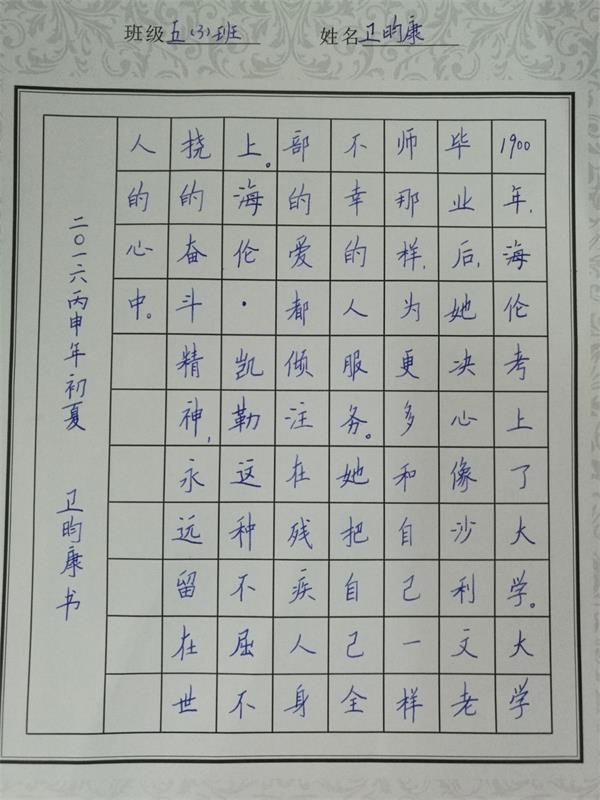 班级五(3)班 姓名卫昀康
1900年,海伦考上了大学。大学
毕业后,她决心像沙利文老
师那样,为更多和自己一样
不幸的人服务。她把自己全
部的爱都倾注在残疾人身
上。海伦·凯勒这种不屈不
挠的奋斗精神,永远留在世
人的心中。
二〇一六丙申年初夏 卫昀康书